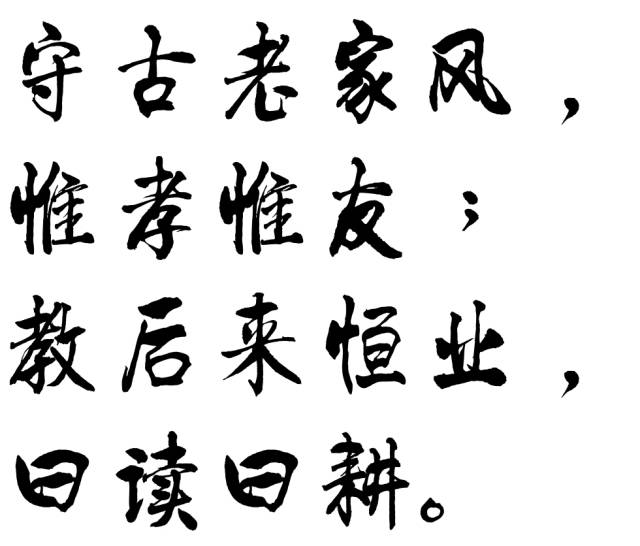 守古老家风，
惟孝惟友；
教后来恒业，
曰读曰耕。